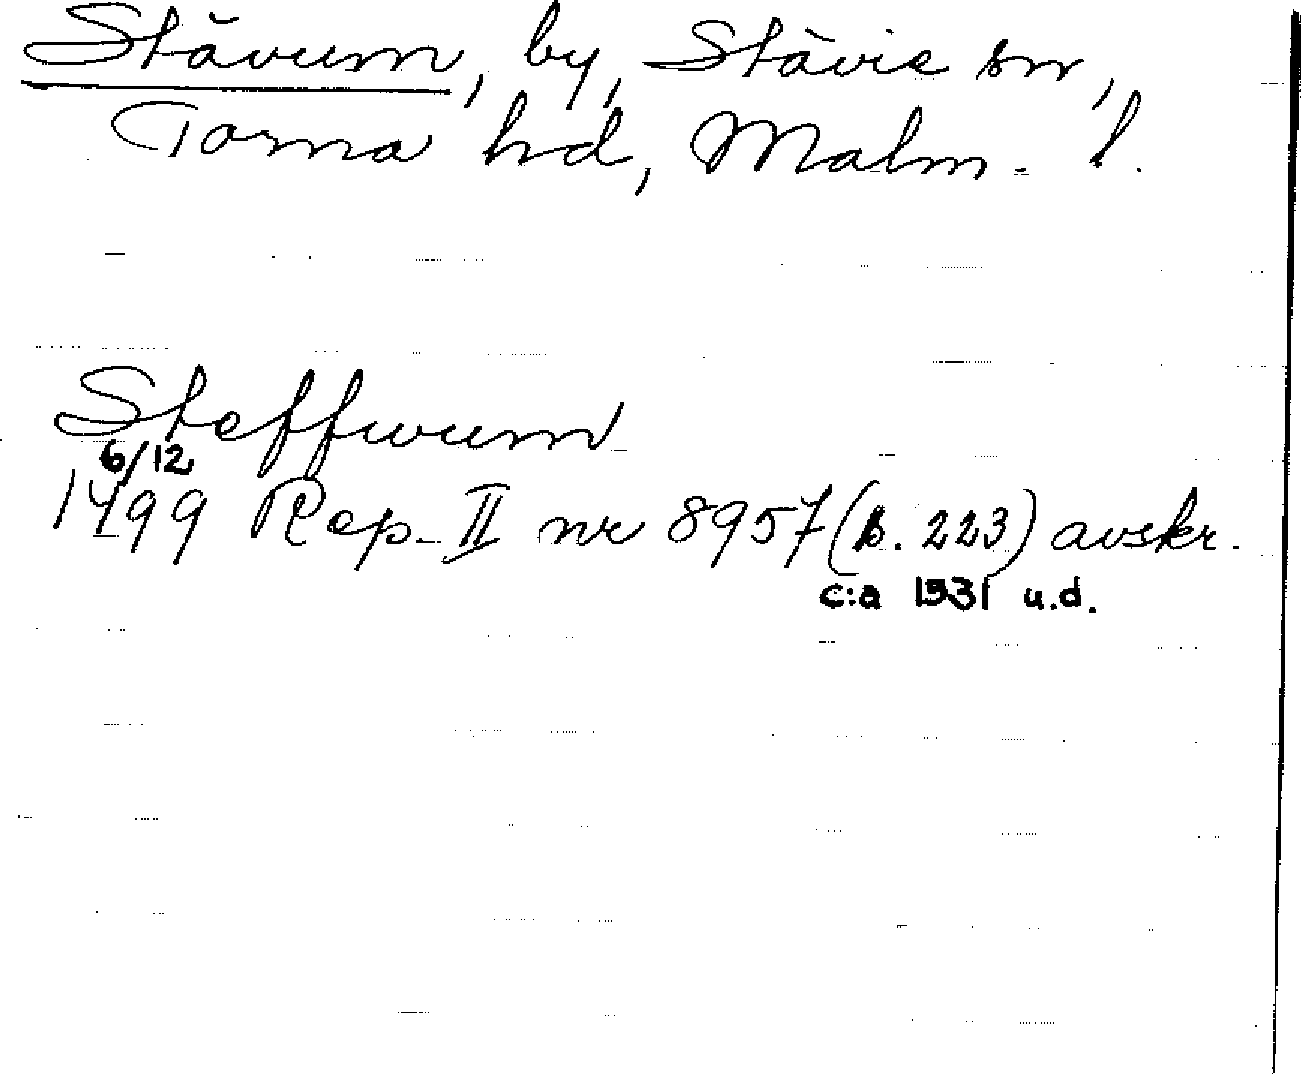 Stävum, by, Stävie sn,
Torna hd, Malm. l.
Steffwum
6/12
1499 Rep. II nr 8957 (s. 223) avskr.
c:a 1531 u.d.